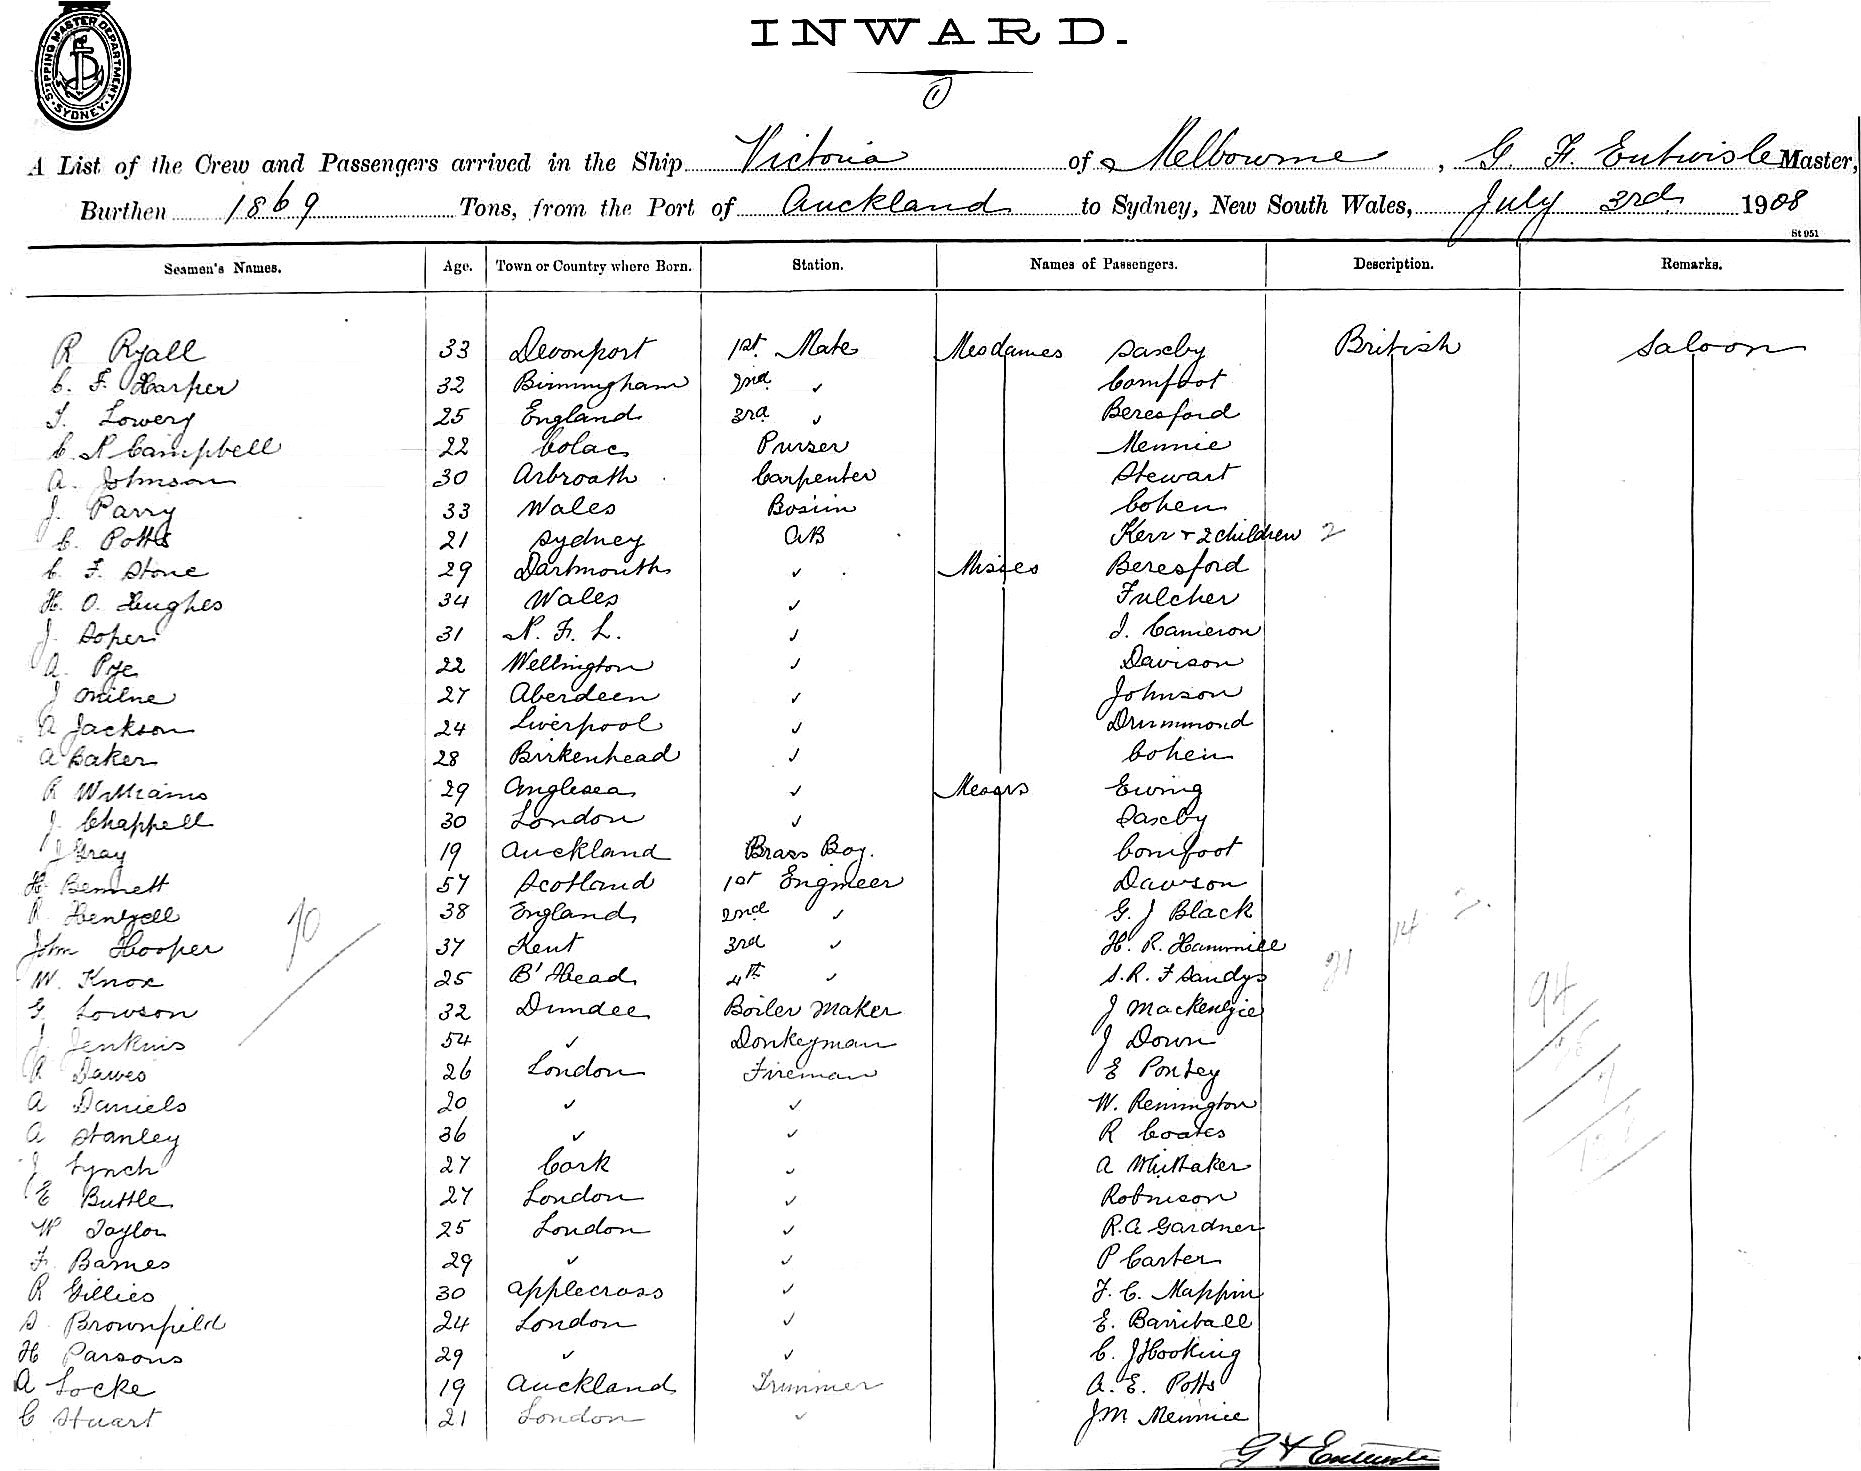 SHIPPING MASTER DEPARTMENT. SYDNEY
INWARD.
1
A List of the Crew and Passengers arrived in the Ship Victoria of Melbourne, G. F. Entwisle Master,
Burthen 1869 Tons, from the Port of Auckland to Sydney, New South Wales, July 3rd 1908
St 951
Seamen's Names. Age. Town or Country where Born. Station. Names of Passengers. Description. Remarks.
R Ryall 33 Devonport 1st Mate Mesdames Saxby British Saloon
C. F. Harper 32 Birmingham 2nd ✓ Comfoot
T. Lowery 25 England 3rd ✓ Beresford
C. N Campbell 22 Colac Purser Mennie
A. Johnson 30 Arbroath Carpenter Stewart
J. Parry 33 Wales Bosun Cohen
C. Potts 21 Sydney AB Kerr + 2 children 2
C. F. Stone 29 Dartmouth ✓ Misses Beresford
H. O. Hughes 34 Wales ✓ Fulcher
J. Soper 31 N. F. L. ✓ I. Cameron
A. Pye 22 Wellington ✓ Davison
J Milne 27 Aberdeen ✓ Johnson
A Jackson 24 Liverpool ✓ Drummond
A Baker 28 Birkenhead ✓ Cohen
R Williams 29 Anglesea ✓ Messrs Ewing
J. Chappell 30 London ✓ Saxby
J Gray 19 Auckland Brass Boy. Comfoot
H. Bennett 57 Scotland 1st Engineer Dawson
R. Hentzell 38 England 2nd ✓ G. J Black
John Hooper 37 Kent 3rd ✓ H. R. Hammill
W. Knox 25 B'Head 4th ✓ S. R. F Sandys 21
G Lowson 32 Dundee Boiler Maker J Mackenzie 94
J. Jenkins 54 ✓ Donkeyman J Down
R Dawes 26 London Fireman E Pontey
A Daniels 20 ✓ ✓ W. Remington
A Stanley 36 ✓ ✓ R Coates
J Lynch 27 Cork ✓ A Whittaker
E Buttle 27 London ✓ Robinson
W Taylor 25 London ✓ R. A Gardner
F. Barnes 29 ✓ ✓ P Carter
R Gillies 30 Applecross ✓ F. C. Mappin
S. Brownfield 24 London ✓ E. Barriball
H Parsons 29 ✓ ✓ C. J Hooking
A Locke 19 Auckland Trimmer A. E. Potts
C Stuart 21 London ✓ J M. Mennie
G F Entwisle